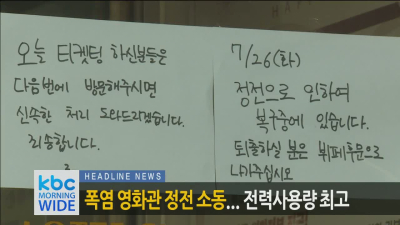 오늘 티켓팅 하신분들은
다음번에 방문해주시면
신속한 처리 도와드리겠습니다.
죄송합니다.
7/26(화)
정전으로 인하여
복구중에 있습니다.
퇴출하실 분은 뷔페후문으로
나와주십시오
HEADLINE NEWS
kbc
MORNING
WIDE
폭염 영화관 정전 소동... 전력사용량 최고